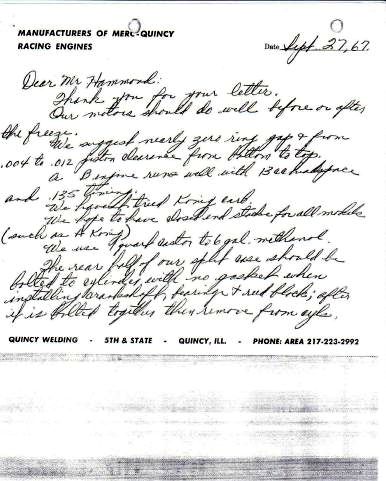 MANUFACTURERS OF MERC-QUINCY
RACING ENGINES
Date Sept 27, 67.
Dear Mr Hammond:
Thank you for your letter.
Our motors should do well before or after
the freeze.
We suggest nearly zero ring gap & from
.004 to .012 piston clearance from bottom to top.
a B engine runs well with
and .135 timing.
We haven't tried Konig carb.
We hope to have closed end stacks for all models
(such as a Konig)
We use 1 quart castor to 6 gal. methanol.
The rear half of our split case should be
bolted to cylinder, with no gasket when
installing crankshaft, bearings & reed blocks; after
it is bolted together then remove from cyls.
QUINCY WELDING - 5TH & STATE - QUINCY, ILL. - PHONE: AREA 217-223-2992